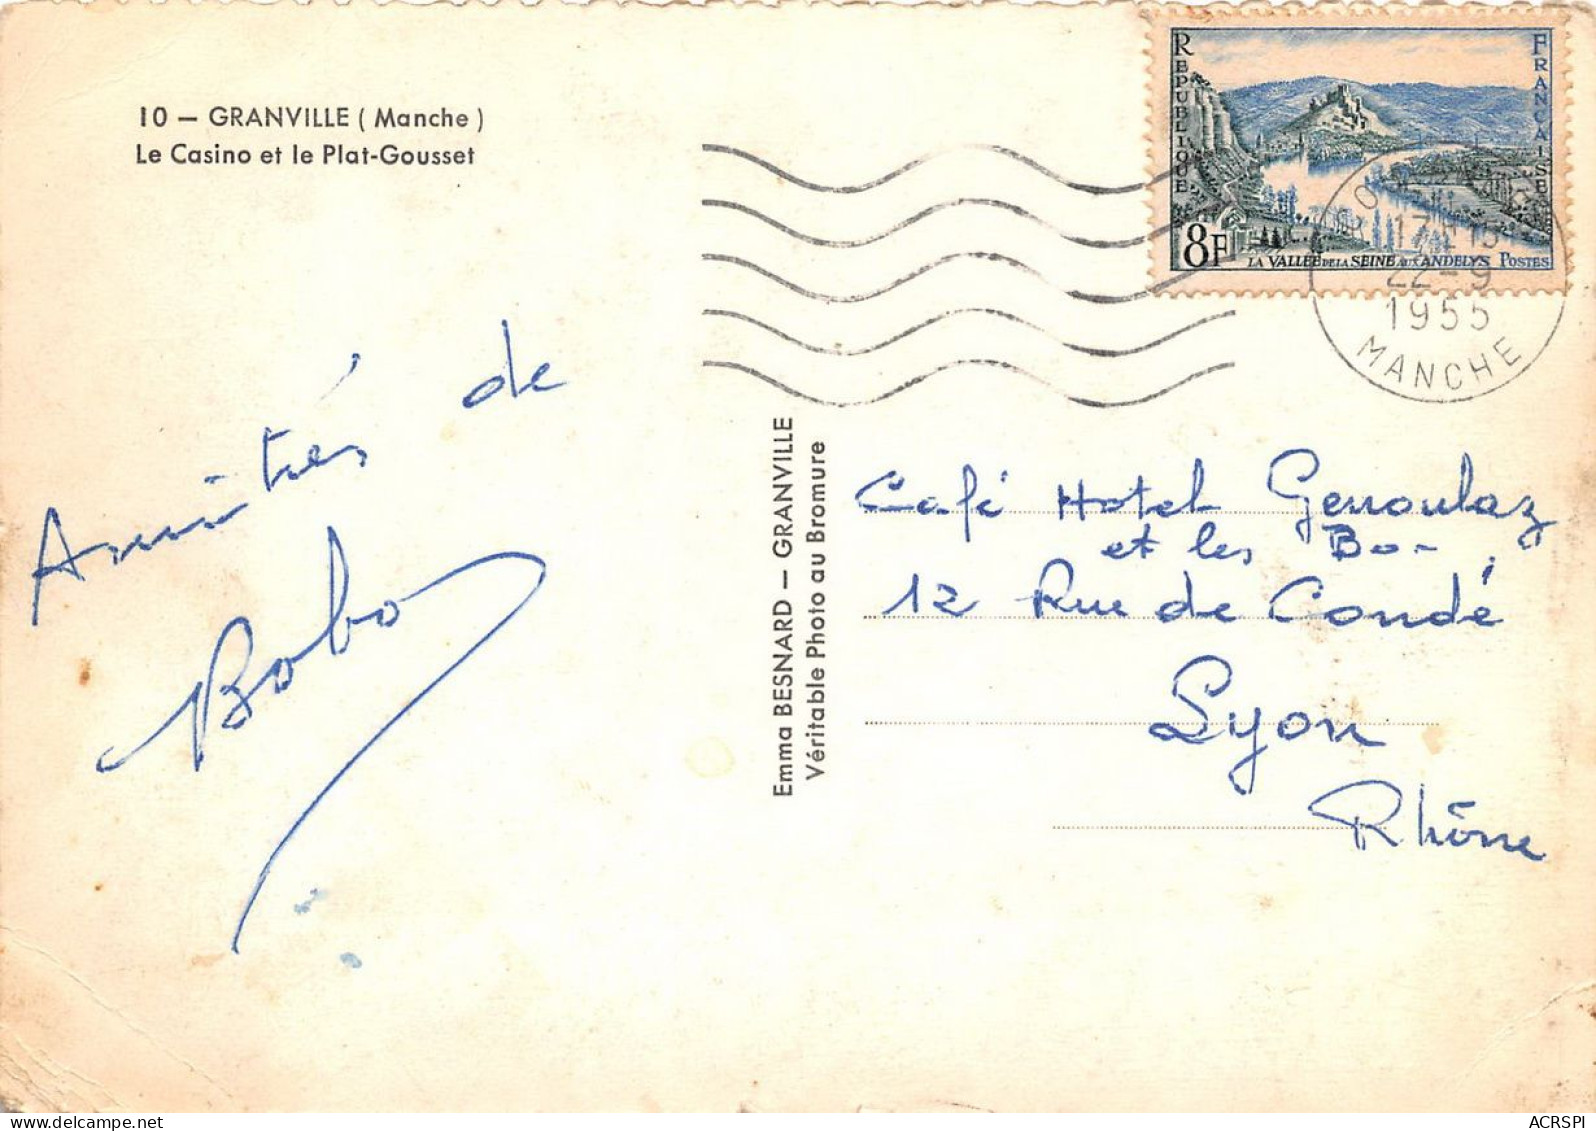 10 — GRANVILLE ( Manche )
Le Casino et le Plat-Gousset
RÉPUBLIQUE
FRANÇAISE
8F
LA VALLÉE DE LA SEINE AUX ANDELYS POSTES
17H15
22-9
1955
MANCHE
Amitiés de
Bobo
Emma BESNARD — GRANVILLE
Véritable Photo au Bromure
Café Hotel
et les Bo-
12 Rue de Condé
Lyon
Rhône
ACRSPI